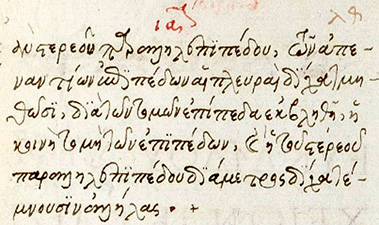 στερεοῦ παραλληλεπιπέδου, τῶν ἀπε
ναντίων ἐπιπέδων αἱ πλευραὶ δίχα τμη
θῶσι, διὰ τῶν τομῶν ἐπίπεδα ἐκβληθῇ, ἡ
κοινὴ τομὴ τῶν ἐπιπέδων, καὶ ἡ τοῦ στερεοῦ
παραλληλεπιπέδου διάμετρος δίχα τέ
μνουσιν ἀλλήλας. +